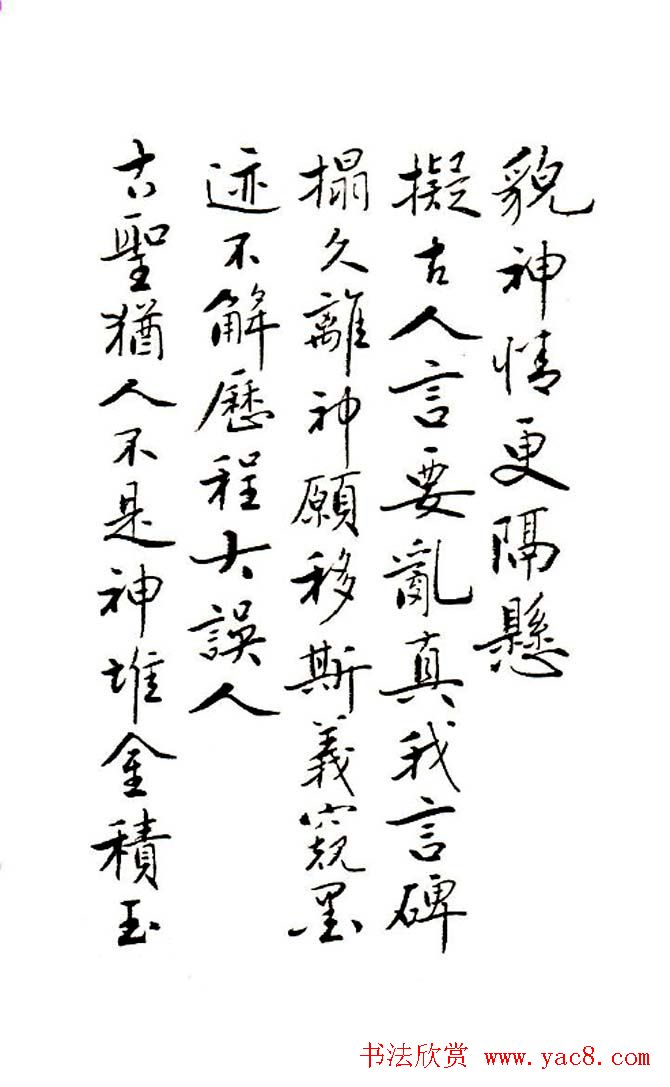 貌神情更隔懸
擬古人言要亂真我言碑
搨久離神願移斯義窺墨
迹不解歷程大誤人
古聖猶人不是神堆金積玉
书法欣赏 www.yac8.com